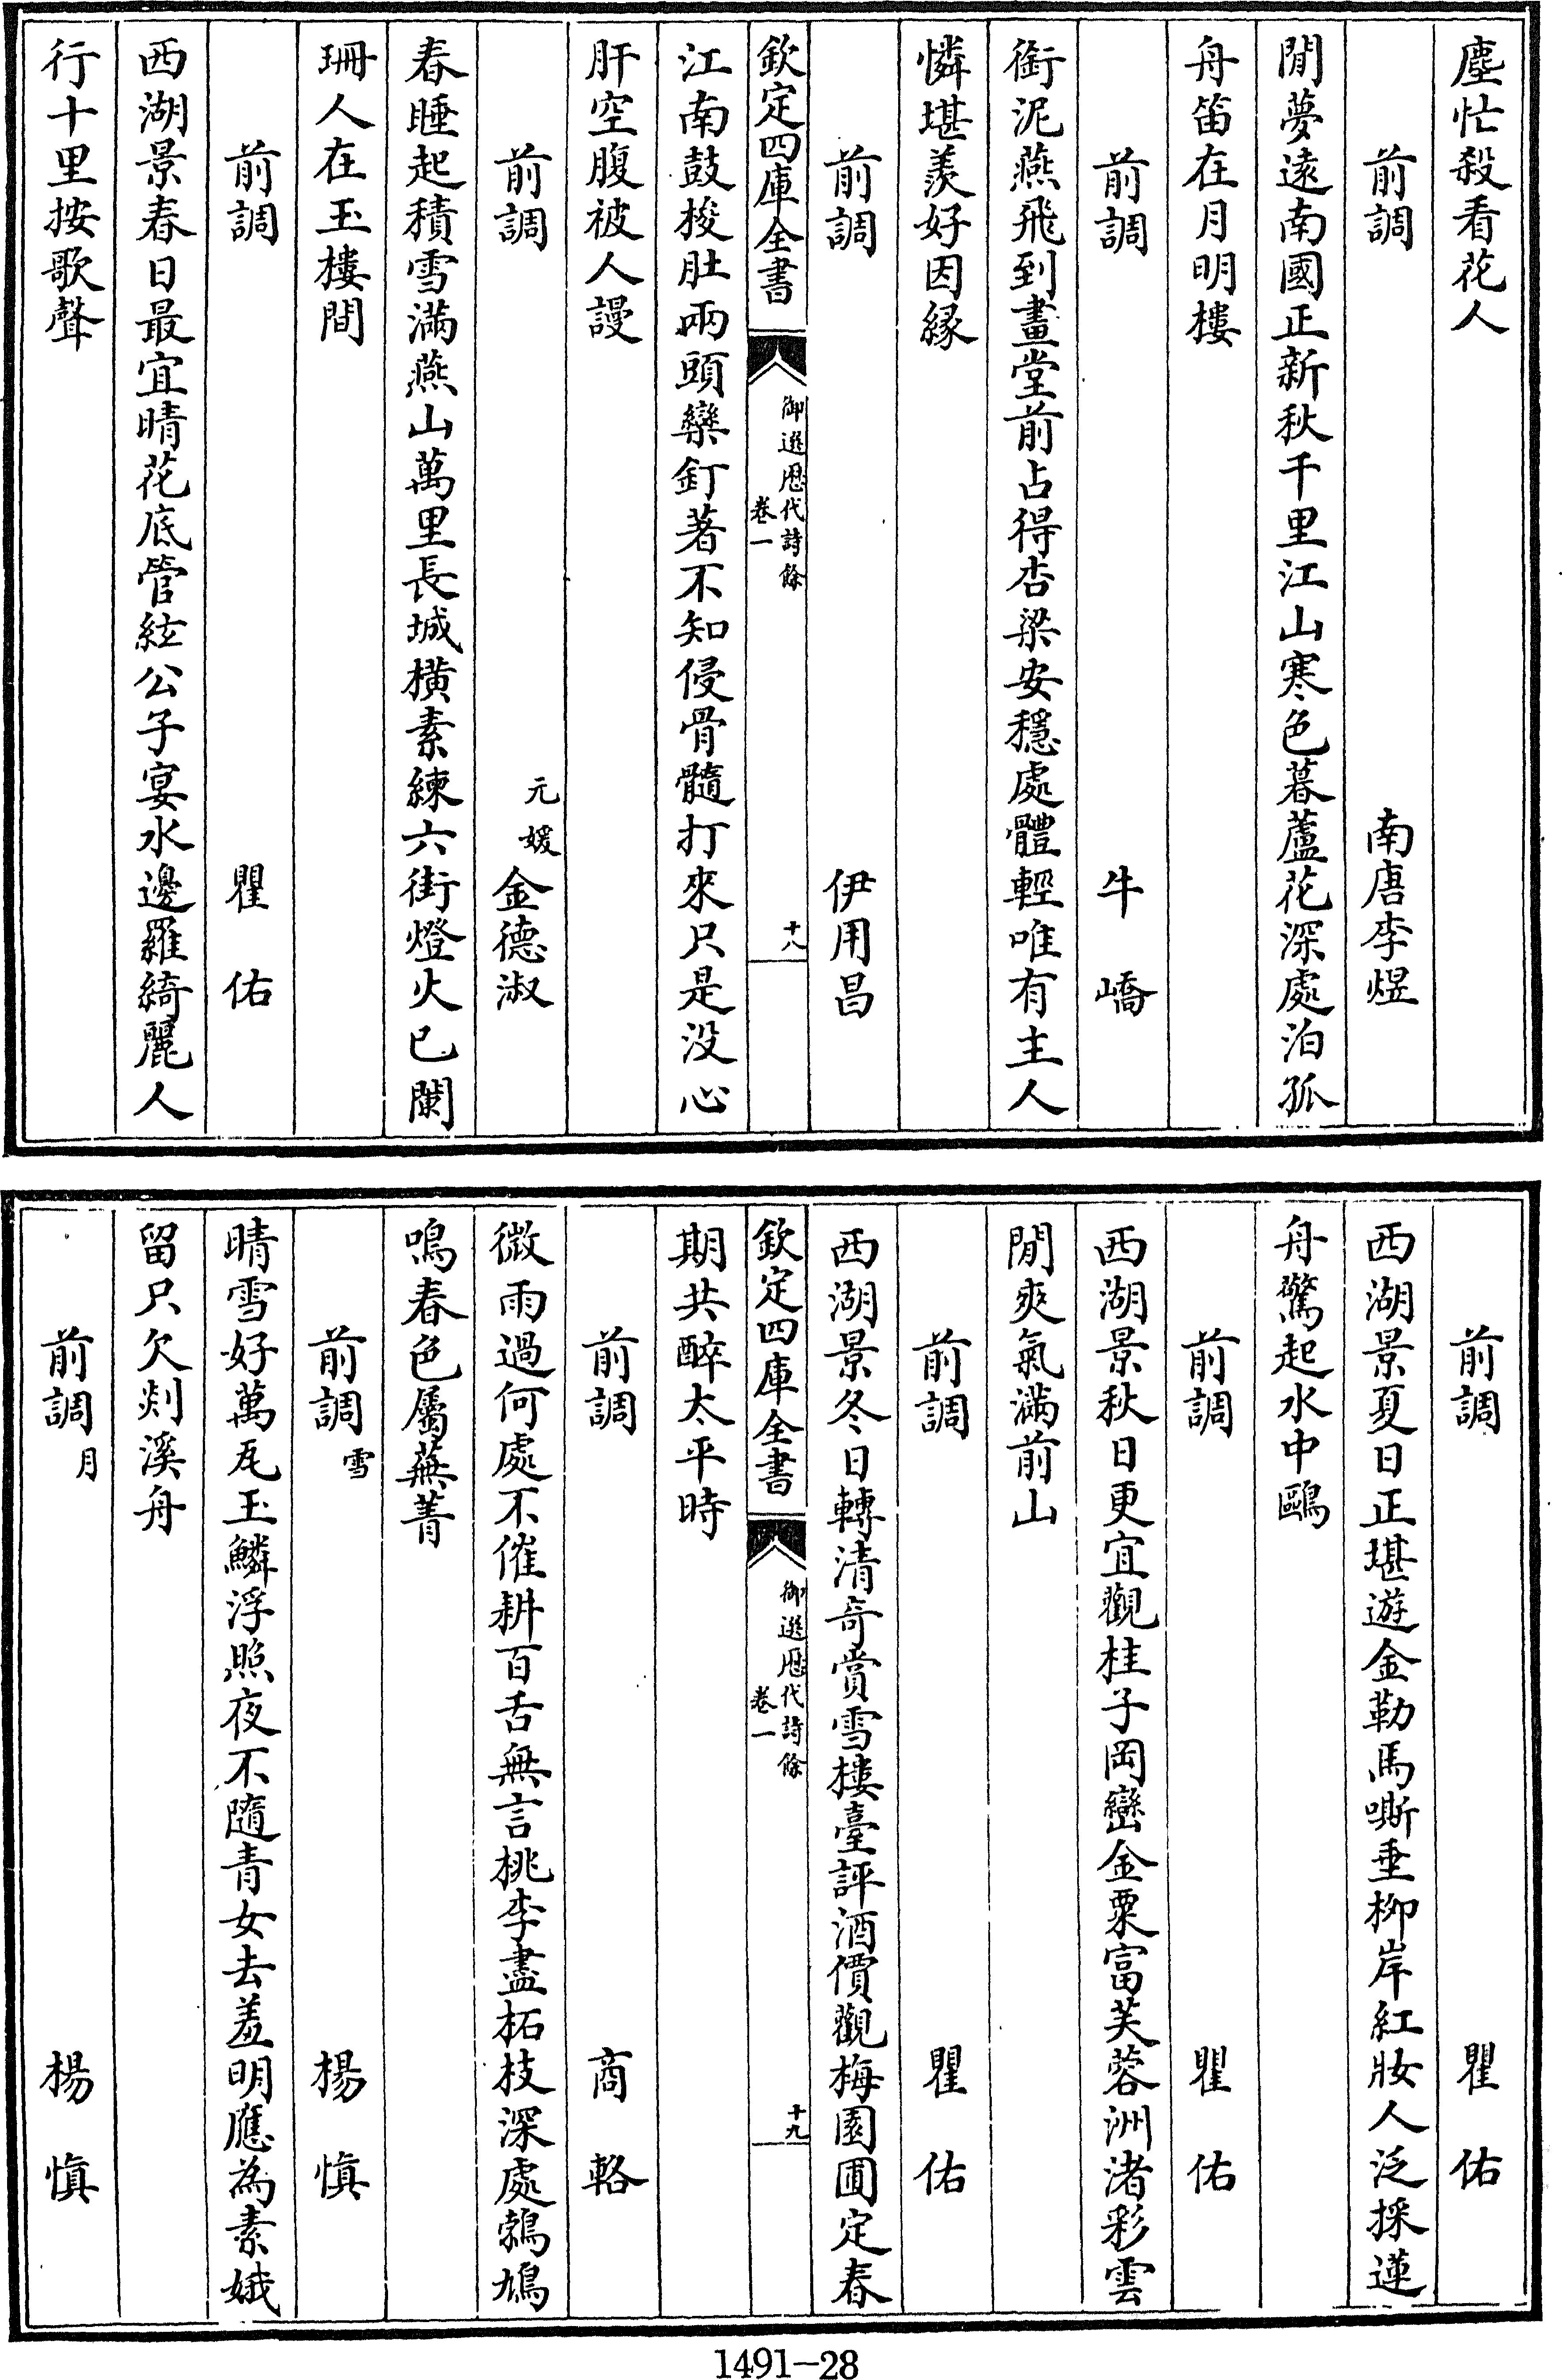 塵忙殺看花人
前調　南唐李煜
閒夢遠南國正新秋千里江山寒色暮蘆花深處泊孤
舟笛在月明樓
前調　牛嶠
銜泥燕飛到畫堂前占得杏梁安穩處體輕唯有主人
憐堪羨好因緣
前調　伊用昌
欽定四庫全書　御選歷代詩餘　卷一　十八
江南鼓梭肚兩頭欒釘著不知侵骨髓打來只是没心
肝空腹被人謾
前調　元媛金德淑
春睡起積雪滿燕山萬里長城橫素練六街燈火已闌
珊人在玉樓間
前調　瞿佑
西湖景春日最宜晴花底管絃公子宴水邊羅綺麗人
行十里按歌聲
前調　瞿佑
西湖景夏日正堪遊金勒馬嘶垂柳岸紅妝人泛採蓮
舟驚起水中鷗
前調　瞿佑
西湖景秋日更宜觀桂子岡巒金粟富芙蓉洲渚彩雲
閒爽氣滿前山
前調　瞿佑
西湖景冬日轉清奇賞雪樓臺評酒價觀梅園圃定春
欽定四庫全書　御選歷代詩餘　卷一　十九
期共醉太平時
前調　商輅
微雨過何處不催耕百舌無言桃李盡柘枝深處鵓鳩
鳴春色屬蕪菁
前調雪　楊慎
晴雪好萬瓦玉鱗浮照夜不隨青女去羞明應為素娥
留只欠剡溪舟
前調月　楊慎
1491-28